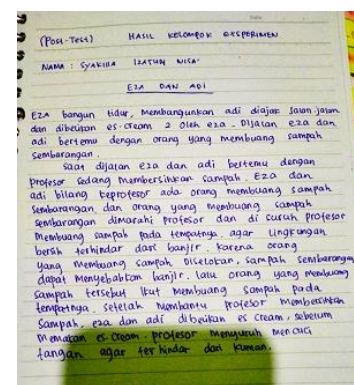 (Post-Test) HASIL KELOMPOK EKSPERIMEN
NAMA : SYAKIRA IZATUN NISA'
EZA DAN ADI
EZA bangun tidur, membangunkan adi diajak jalan jalan
dan dibelikan es-cream 2 oleh eza. Dijalan eza dan
adi bertemu dengan orang yang membuang sampah
sembarangan.
saat dijalan eza dan adi bertemu dengan
profesor sedang membersihkan sampah. Eza dan
adi bilang keprofesor ada orang membuang sampah
sembarangan dan orang yang membuang sampah
sembarangan dimarahi profesor dan di suruh profesor
membuang sampah pada tempatnya. agar lingkungan
bersih terhindar dari banjir. karena orang
yang membuang sampah diselokan, sampah sembarangan
dapat menyebabkan banjir. lalu orang yang membuang
sampah tersebut ikut membuang sampah pada
tempatnya. setelah membantu profesor membersihkan
sampah, eza dan adi dibelikan es cream, sebelum
memakan es-cream. profesor menyuruh mencuci
tangan agar terhindar dari kuman.